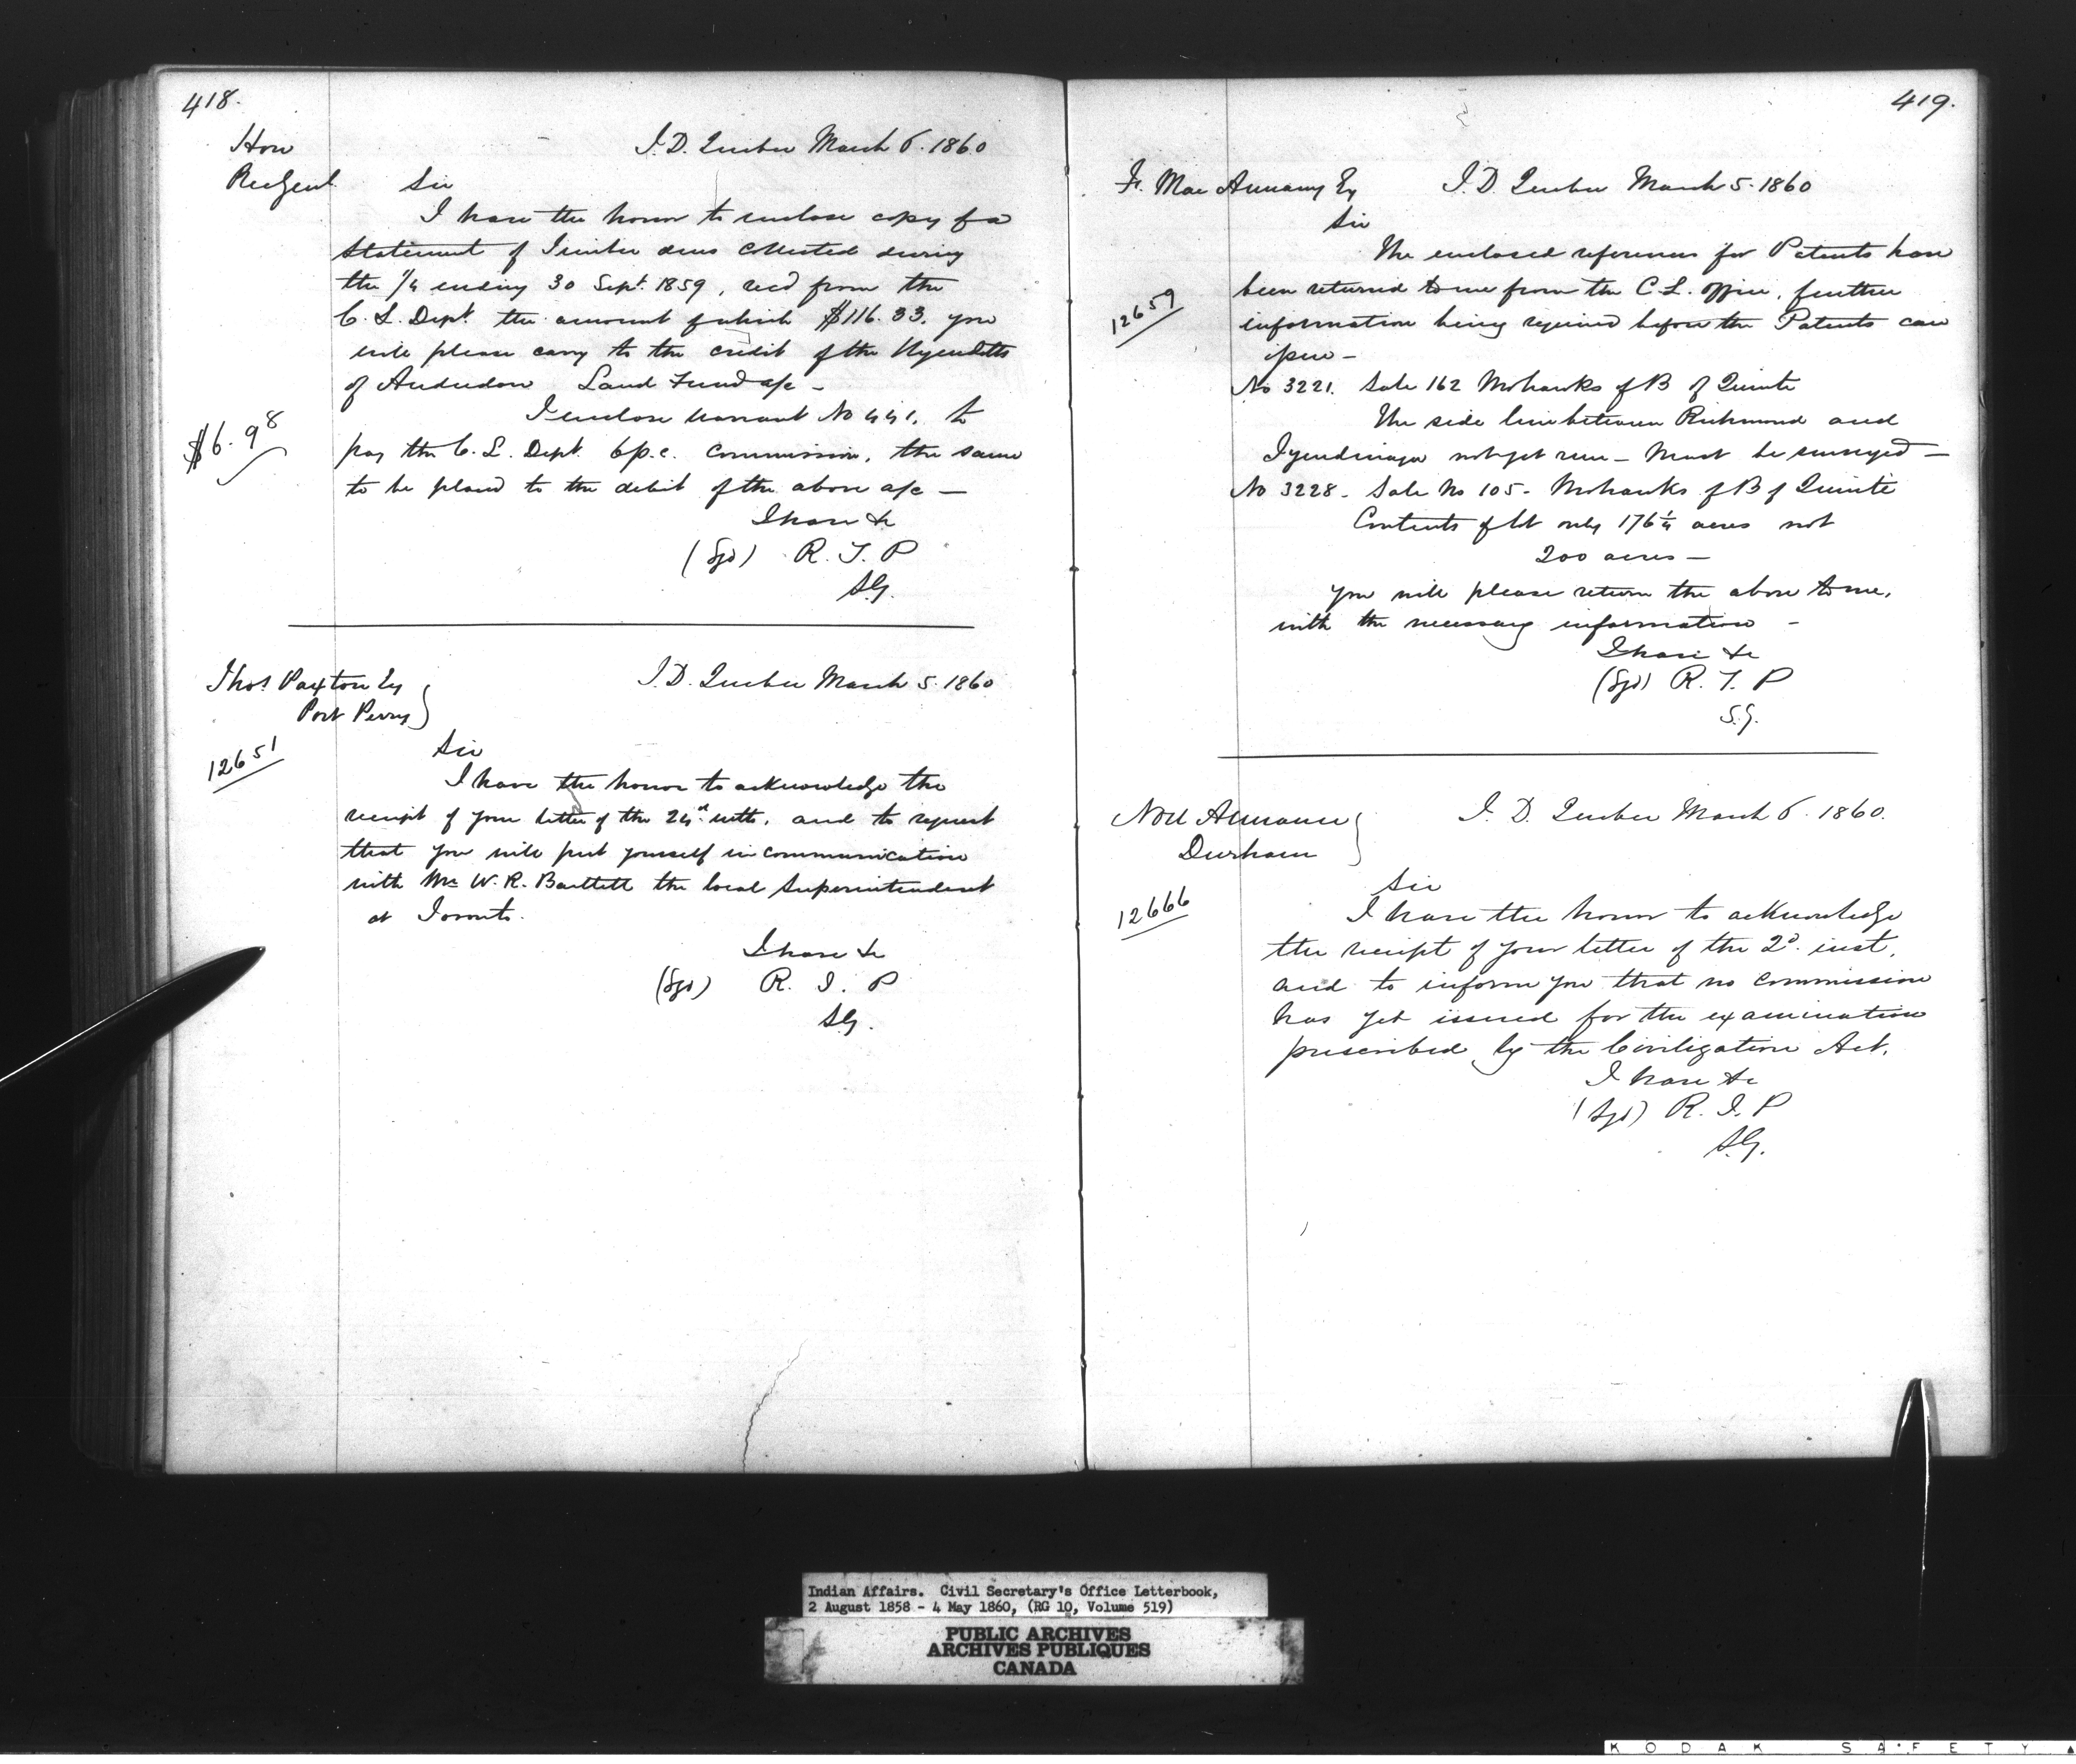 418.
Hon
Rec Genl
I. D. Quebec March 6. 1860
Sir
I have the honor to enclose copy of a
statement of Timber dues collected during
the 1/4 ending 30 Sept. 1859, recd from the
C. L. Dept. the amount of which $116.33. you
will please carry to the credit of the Wyandotts
of Anderdon Land Fund a/c –
I enclose warrant No 441. to
$6.98
pay the C. L. Dept. 6 p.c. commission, the same
to be placed to the debit of the above a/c —
I have &c
(Sgd) R. T. P
S.G.
Thos Paxton Esq
Port Perry
I. D. Quebec March 5. 1860
12651
Sir
I have the honor to acknowledge the
receipt of your letter of the 24th ulto, and to request
that you will put yourself in communication
with Mr W. R. Bartlett the local Superintendent
at Toronto.
I have &c
(Sgd) R. T. P
S.G.
419.
Mac Annany Esq
I. D. Quebec March 5. 1860
Sir
The enclosed references for Patents have
12659
been returned to me from the C. L. Office, further
information being required before the Patents can
issue –
No 3221. Sale 162 Mohawks of B of Quinte
The side line between Richmond and
Tyendinaga not yet run – Must be surveyed –
No 3228 – Sale No 105 – Mohawks of B of Quinté
Contents of lot only 176 1/4 acres not
200 acres –
You will please return the above to me,
with the necessary information –
I have &c
(Sgd) R. T. P
S.G.
Noel Annance
Durham
I. D. Quebec March 6. 1860.
12666
Sir
I have the honor to acknowledge
the receipt of your letter of the 2d. inst,
and to inform you that no commission
has yet issued for the examination
prescribed by the Civilization Act.
I have &c
(Sgd) R. T. P
S.G.
Indian Affairs. Civil Secretary's Office Letterbook,
2 August 1858 - 4 May 1860, (RG 10, Volume 519)
PUBLIC ARCHIVES
ARCHIVES PUBLIQUES
CANADA
KODAK SAFETY